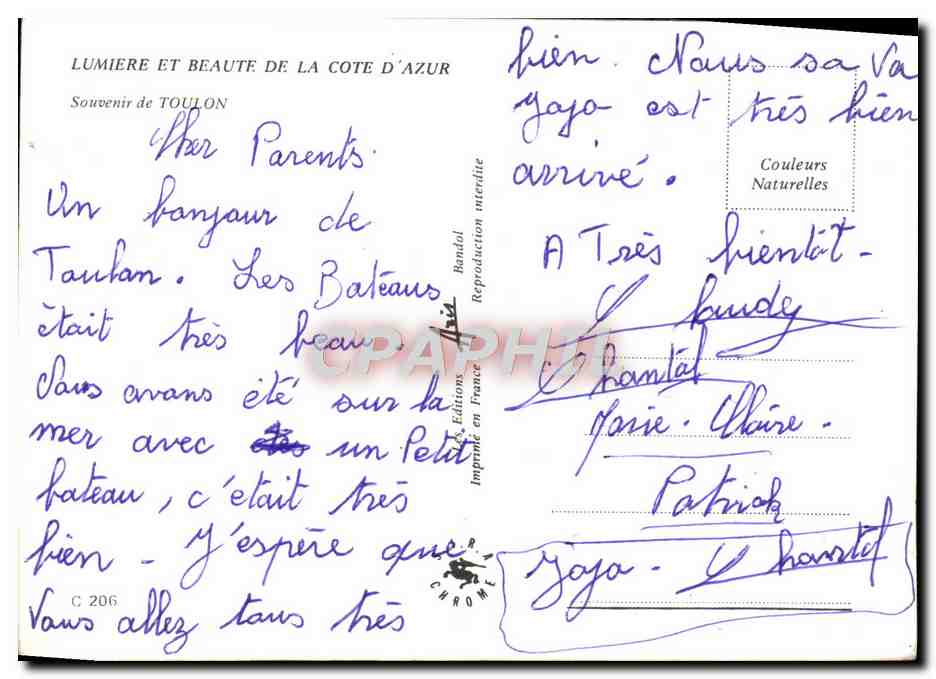 LUMIERE ET BEAUTE DE LA COTE D'AZUR
Souvenir de TOULON
Cher Parents.
Un bonjour de
Toulon. Les Bateaus
était très beau.
Nous avons été sur la
mer avec un Petit
bateau, c'était très
bien - J'espère que
Vous allez tous très
C 206
bien. Nous sa va
Jojo est très bien
arrivé.
A Très bientôt -
Chantal
Marie. Claire.
Patrick
Jojo - Chantal
Couleurs
Naturelles
Les Editions Aris Bandol
Imprimé en France Reproduction interdite
CHROME
CPAPHIL